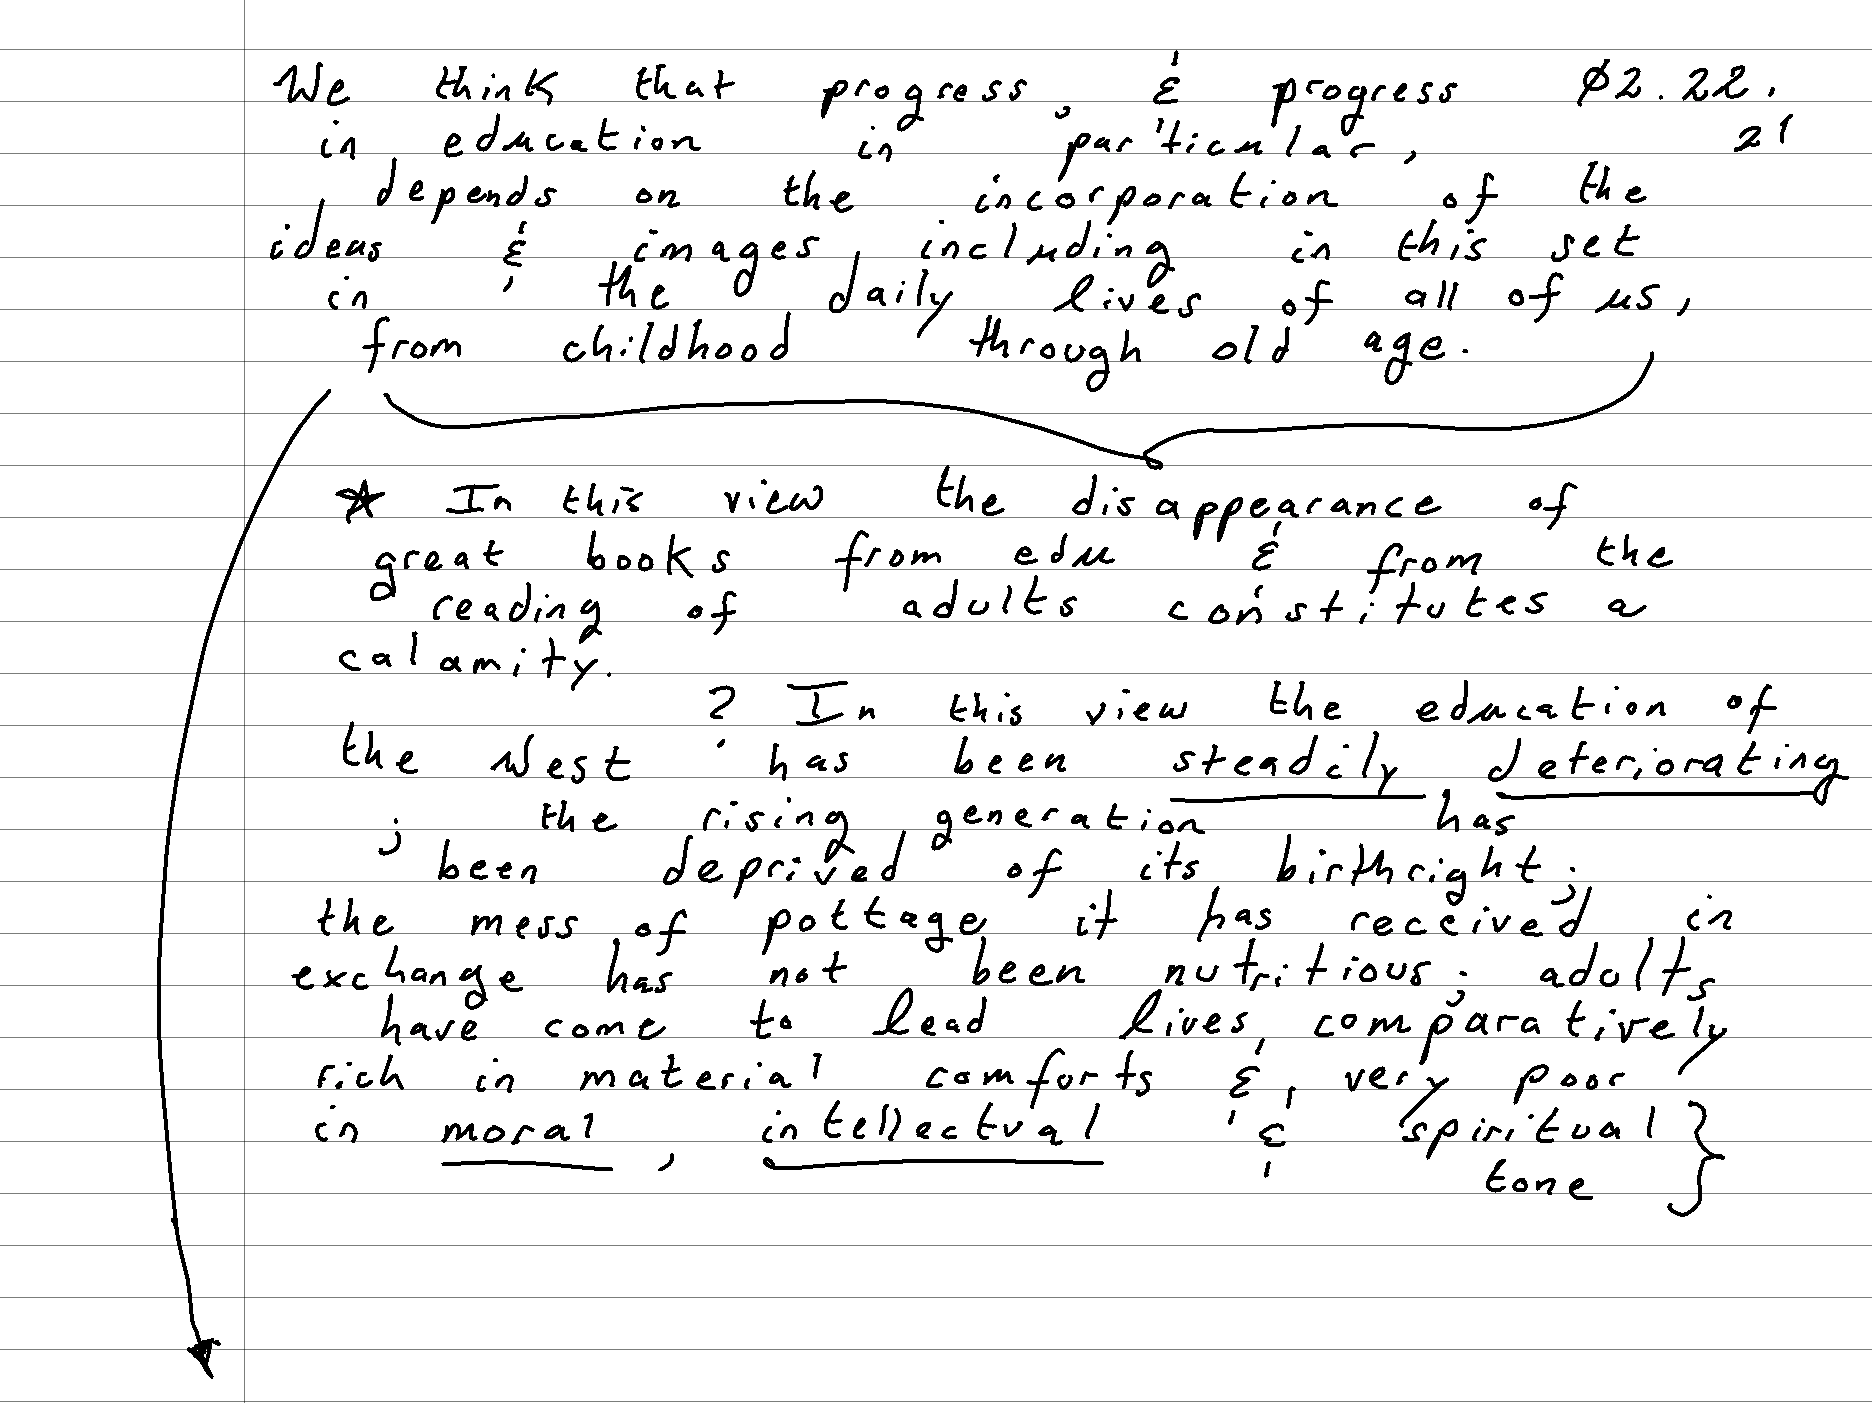 We think that progress, & progress 02.22.
in education in particular, 21
depends on the incorporation of the
ideas & images including in this set
in the daily lives of all of us,
from childhood through old age.
* In this view the disappearance of
great books from edu & from the
reading of adults constitutes a
calamity.
? In this view the education of
the West has been steadily deteriorating
; the rising generation has
been deprived of its birthright;
the mess of pottage it has received in
exchange has not been nutritious; adults
have come to lead lives comparatively
rich in material comforts & very poor
in moral, intellectual & spiritual
tone